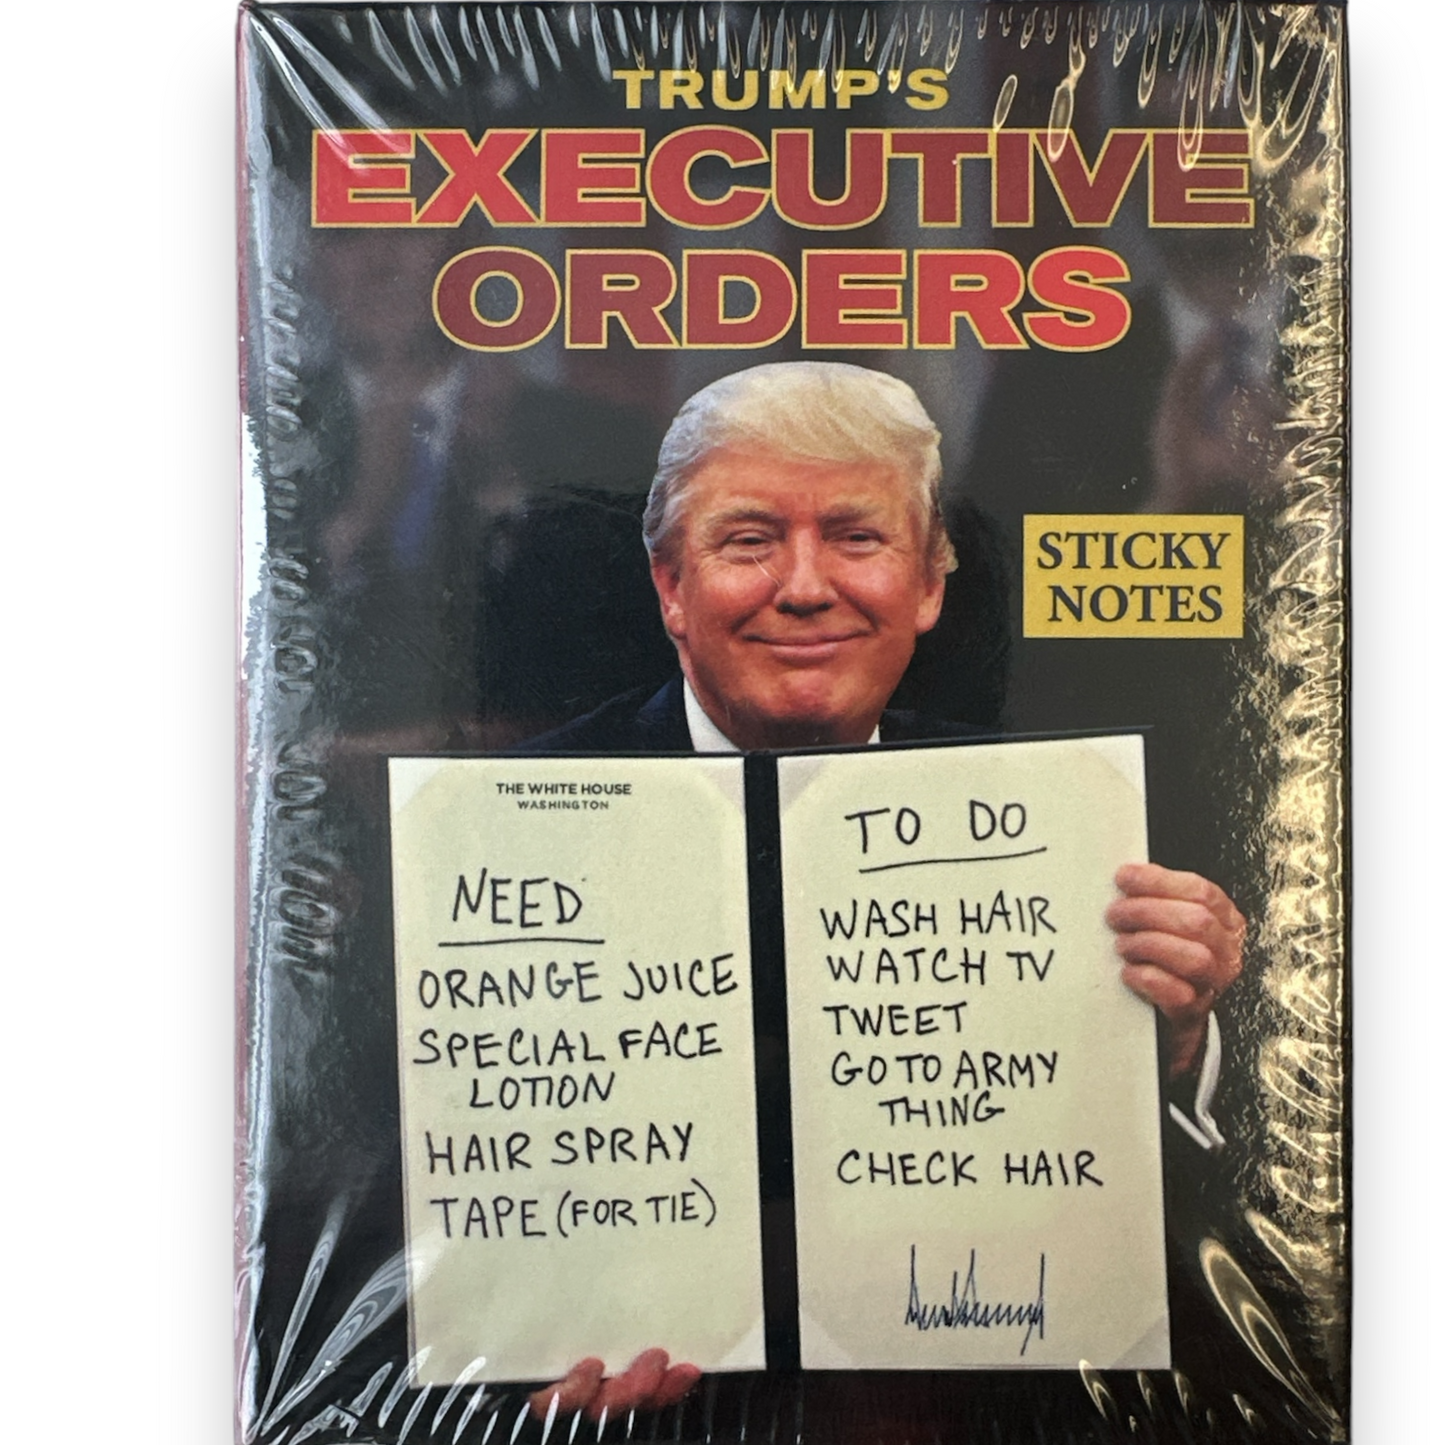 TRUMP'S
EXECUTIVE
ORDERS
STICKY
NOTES
THE WHITE HOUSE
WASHINGTON
NEED
ORANGE JUICE
SPECIAL FACE
LOTION
HAIR SPRAY
TAPE (FOR TIE)
TO DO
WASH HAIR
WATCH TV
TWEET
GO TO ARMY
THING
CHECK HAIR